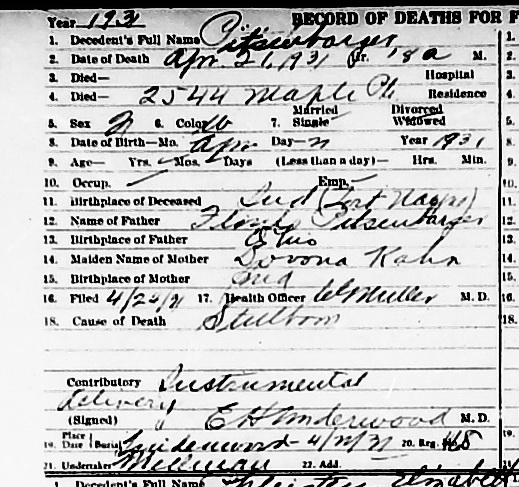 Year 1931 RECORD OF DEATHS FOR F
1. Decedent's Full Name Pitsenbarger
2. Date of Death Apr 21, 1931 Hr. 18 a M.
3. Died— Hospital
4. Died— 2544 Maple Pl. Residence
5. Sex 6. Color W 7. Married Single Divorced Widowed
8. Date of Birth—Mo. Apr Day— 21 Year 1931
9. Age— Yrs. Mos. Days (Less than a day)— Hrs. Min.
10. Occup. — Emp. —
11. Birthplace of Deceased Ind (Fort Wayne)
12. Name of Father Floyd Pitsenbarger
13. Birthplace of Father Ohio
14. Maiden Name of Mother Dovona Kahn
15. Birthplace of Mother Ind
16. Filed 4/22/31 17. Health Officer Miller M. D.
18. Cause of Death Stillborn
Contributory Instrumental
delivery
(Signed) E H Underwood M. D.
19. Place Date (Burial) Lindenwood - 4/21/31 20. Reg. No. 468
21. Undertaker 22. Add.
1. Decedent's Full Name Elizabeth